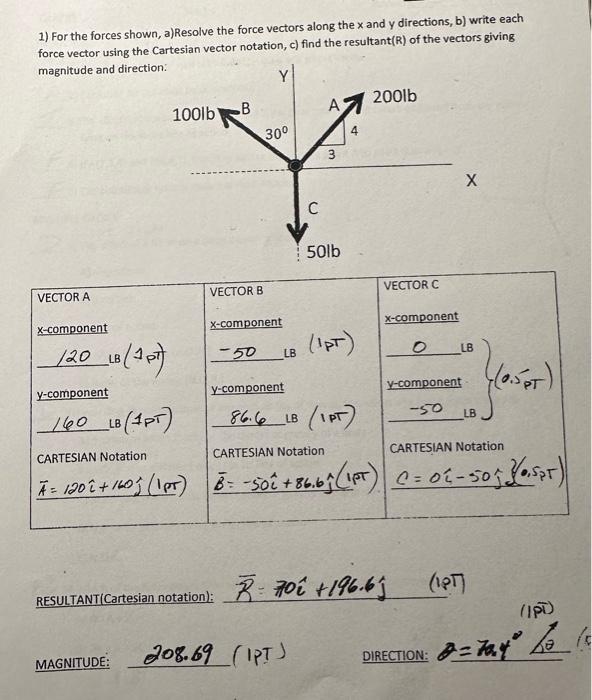 1) For the forces shown, a)Resolve the force vectors along the x and y directions, b) write each
force vector using the Cartesian vector notation, c) find the resultant(R) of the vectors giving
magnitude and direction:
Y
100lb B
A 200lb
30⁰
4
3
X
C
50lb
VECTOR A
x-component
120 LB (1pt)
y-component
160 LB (1PT)
CARTESIAN Notation
A̅ = 120î + 160ĵ (1PT)
VECTOR B
x-component
-50 LB (1PT)
y-component
86.6 LB (1PT)
CARTESIAN Notation
B̅ = -50î + 86.6ĵ (1PT)
VECTOR C
x-component
0 LB
y-component
-50 LB
(0.5PT)
CARTESIAN Notation
C = 0î - 50ĵ } (0.5PT)
RESULTANT(Cartesian notation): R̅ = 70î + 196.6ĵ (1PT)
(1PT)
MAGNITUDE: 208.69 (1PT)
DIRECTION: θ = 70.4° θ